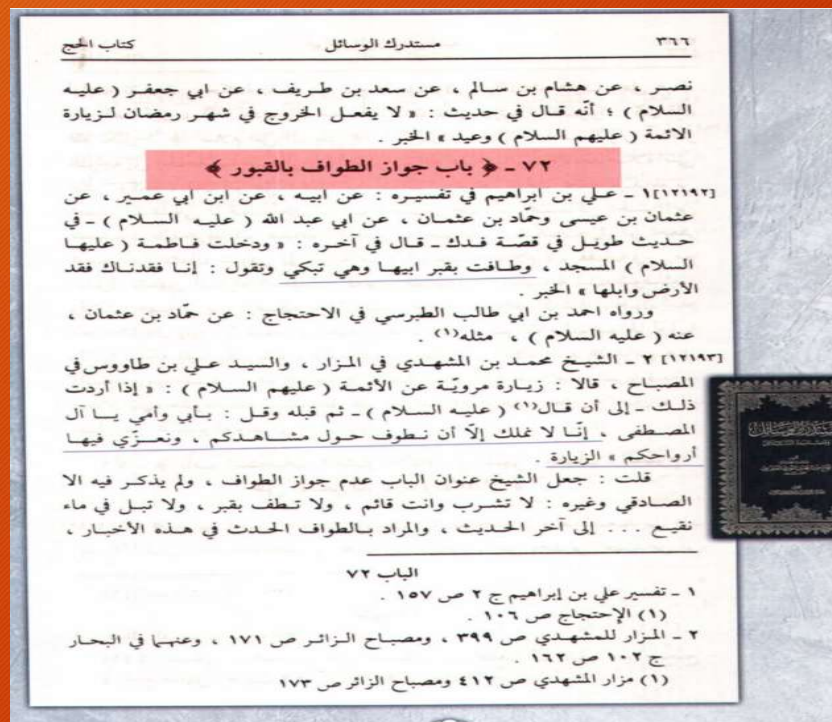 ٣٦٦ مستدرك الوسائل كتاب الحج
نصر ، عن هشام بن سالم ، عن سعد بن طريف ، عن ابي جعفر ( عليه
السلام ) ؛ أنّه قال في حديث : « لا يفعل الخروج في شهر رمضان لزيارة
الائمة ( عليهم السلام ) وعيد » الخبر .
٧٢ ـ ﴿ باب جواز الطواف بالقبور ﴾
[١٢١٩٢] ١ ـ علي بن ابراهيم في تفسيره : عن ابيه ، عن ابن ابي عمير ، عن
عثمان بن عيسى وحمّاد بن عثمان ، عن ابي عبد الله ( عليه السلام ) ـ في
حديث طويل في قصّة فدك ـ قال في آخره : « ودخلت فاطمة ( عليها
السلام ) المسجد ، وطافت بقبر ابيها وهي تبكي وتقول : إنا فقدناك فقد
الأرض وابلها » الخبر .
ورواه احمد بن ابي طالب الطبرسي في الاحتجاج : عن حمّاد بن عثمان ،
عنه ( عليه السلام ) ، مثله(١) .
[١٢١٩٣] ٢ ـ الشيخ محمد بن المشهدي في المزار ، والسيد علي بن طاووس في
المصباح ، قالا : زيارة مرويّة عن الأئمة ( عليهم السلام ) : « إذا أردت
ذلك ـ إلى أن قال(١) ( عليه السلام ) ـ ثم قبله وقل : بأبي وأمي يا آل
المصطفى ، إنّا لا نملك إلاّ أن نطوف حول مشاهدكم ، ونعزّي فيها
أرواحكم » الزيارة .
قلت : جعل الشيخ عنوان الباب عدم جواز الطواف ، ولم يذكر فيه الا
الصادقي وغيره : لا تشرب وانت قائم ، ولا تطف بقبر ، ولا تبل في ماء
نقيع . . . إلى آخر الحديث ، والمراد بالطواف الحدث في هذه الأخبار ،
الباب ٧٢
١ ـ تفسير علي بن إبراهيم ج ٢ ص ١٥٧ .
(١) الإحتجاج ص ١٠٦ .
٢ ـ المزار للمشهدي ص ٣٩٩ ، ومصباح الزائر ص ١٧١ ، وعنهما في البحار
ج ١٠٢ ص ١٦٢ .
(١) مزار المشهدي ص ٤١٢ ومصباح الزائر ص ١٧٣